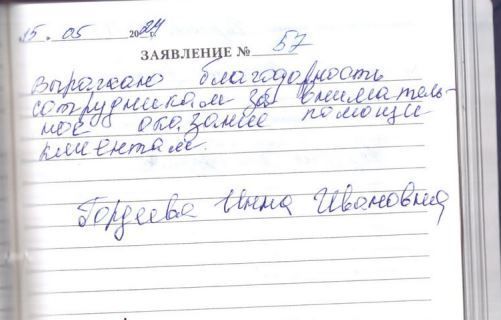 15.05 2024 г.
ЗАЯВЛЕНИЕ № 57
Выражаю благодарность
сотрудникам за вниматель-
ное оказание помощи
клиентам.
Гордеева Инна Ивановна